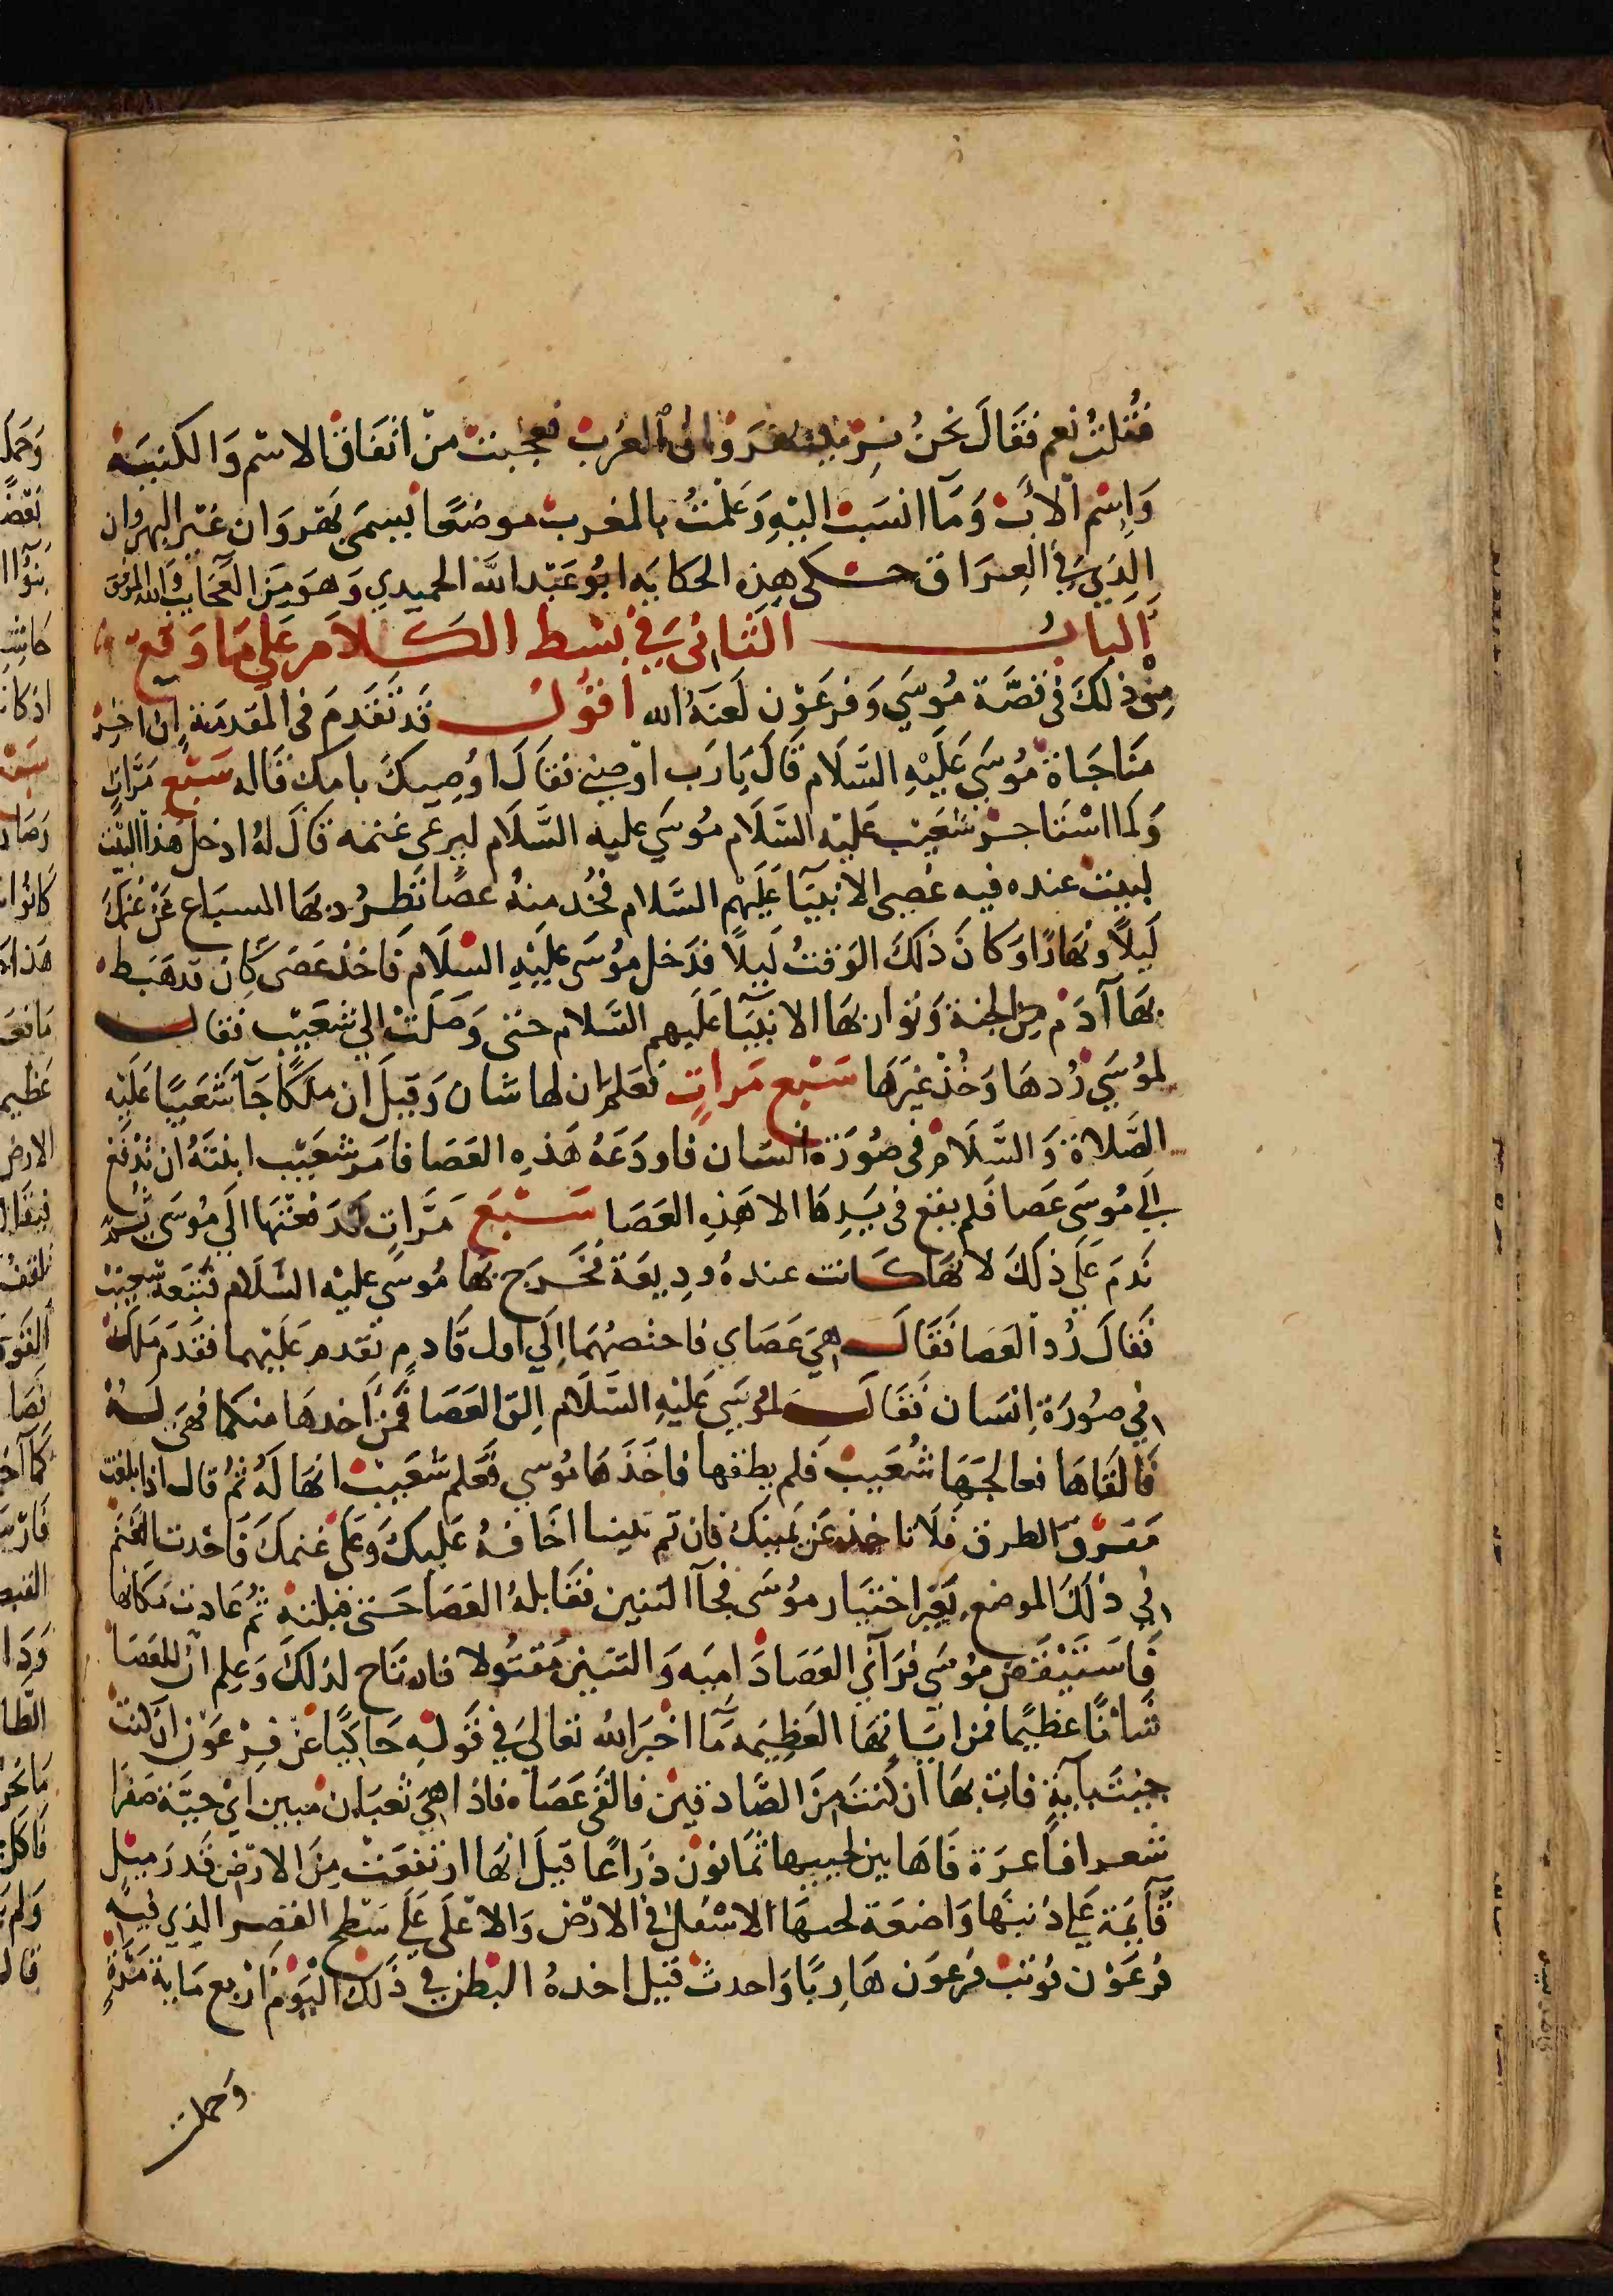 فقلت نعم فقال نحن نريد نهروان الغرب فعجبت من اتفاق الاسم والكنيته
واسم الاب وما انسب اليه وعلمت بالمغرب موضعا يسمى نهروان غير النهروان
الذي في العراق حكى هذه الحكايه ابو عبد الله الحميدي وهو من العجايب والله الموفق
الباب الثاني في بسط الكلام على ما وقع
من ذلك في قصة موسي وفرعون لعنه الله اقول قد تقدم في المقدمة ان اخر
مناجاة موسي عليه السلام قال يا رب اوصني فقال اوصيك بامك قاله سبع مرات
ولما استاجر شعيب عليه السلام موسي عليه السلام ليرعى غنمه قال له ادخل هذا البيت
لبيت عنده فيه عصي الانبيآ عليهم السلام فخد منه عصا تطرد بها السباع عن غنمك
ليلا ونهارا وكان ذلك الوقت ليلا فدخل موسى عليه السلام فاخذ عصى كان قد هبط
بها آدم من الجنة وتوارثها الانبيآ عليهم السلام حتى وصلت الي شعيب فقال
لموسي ردها وخذ غيرها سبع مرات فعلم ان لها شان وقيل ان ملكا جآ شعيبا عليه
الصلاة والسلام في صورة انسان فاودعه هذه العصا فامر شعيب ابنته ان تدفع
الي موسى عصا فلم يقع في يدها الا هذه العصا سبع مرات فدفعتها الي موسى ثم
ندم علي ذلك لانها كانت عنده وديعة فخرج بها موسى عليه السلام فتبعه شعيب
فقال رد العصا فقال هي عصاي فاختصهما الي اول قادم تقدم عليهما فقدم ملك
في صورة انسان فقال لموسي عليه السلام الق العصا فمن اخدها منكما فهي له
فالقاها فعالجها شعيب فلم يطقها فاخذها موسي فعلم شعيب انها له ثم قال اذا بلغت
مفرق الطرق فلا تاخذ عن يمينك فان ثم تنينا اخافه عليك وعلى غنمك فاخدت الغنم
الي ذلك الموضع بغير اختيار موسى فجآ التنين فقابله العصا حتى قتلته ثم عادت مكانها
فاستيقض موسى فرآي العصا داميه والتنين مقتولا فارتاح لذلك وعلم ان للعصا
شانا عظيما فمن اياتها العظيمه مآ اخبر الله تعالي في قوله حاكيا عن فرعون ان كنت
جئت بآية فات بها ان كنت من الصادقين فالقى عصاه فاذا هي ثعبان مبين اي حية صفرا
شعرا فاغرة فاها بين لحييها ثمانون ذراعا قيل انها ارتفعت من الارض قدر ميل
قآيمة علي ذنبها واضعة لحيها الاسفل في الارض والاعلى علي سطح القصر الذي فيه
فرعون فوثب فرعون هاربا واحدث قيل اخده البطن في ذلك اليوم اربع ماية مرة
وحملت